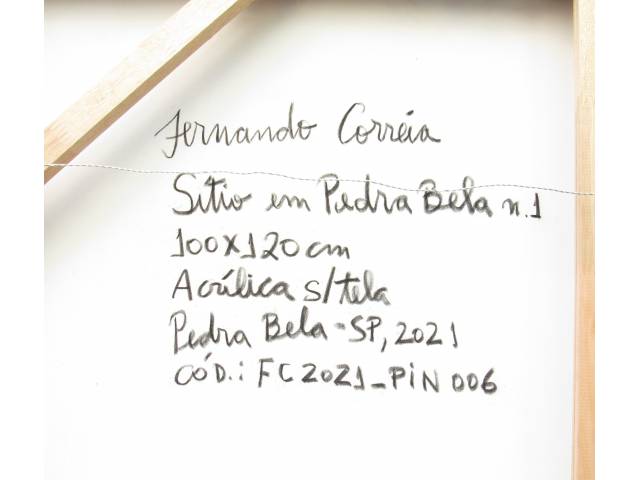 Fernando Corrêia
Sítio em Pedra Bela n.1
100x120 cm
Acrílica s/tela
Pedra Bela-SP, 2021
CÓD.: FC2021_PiN 006